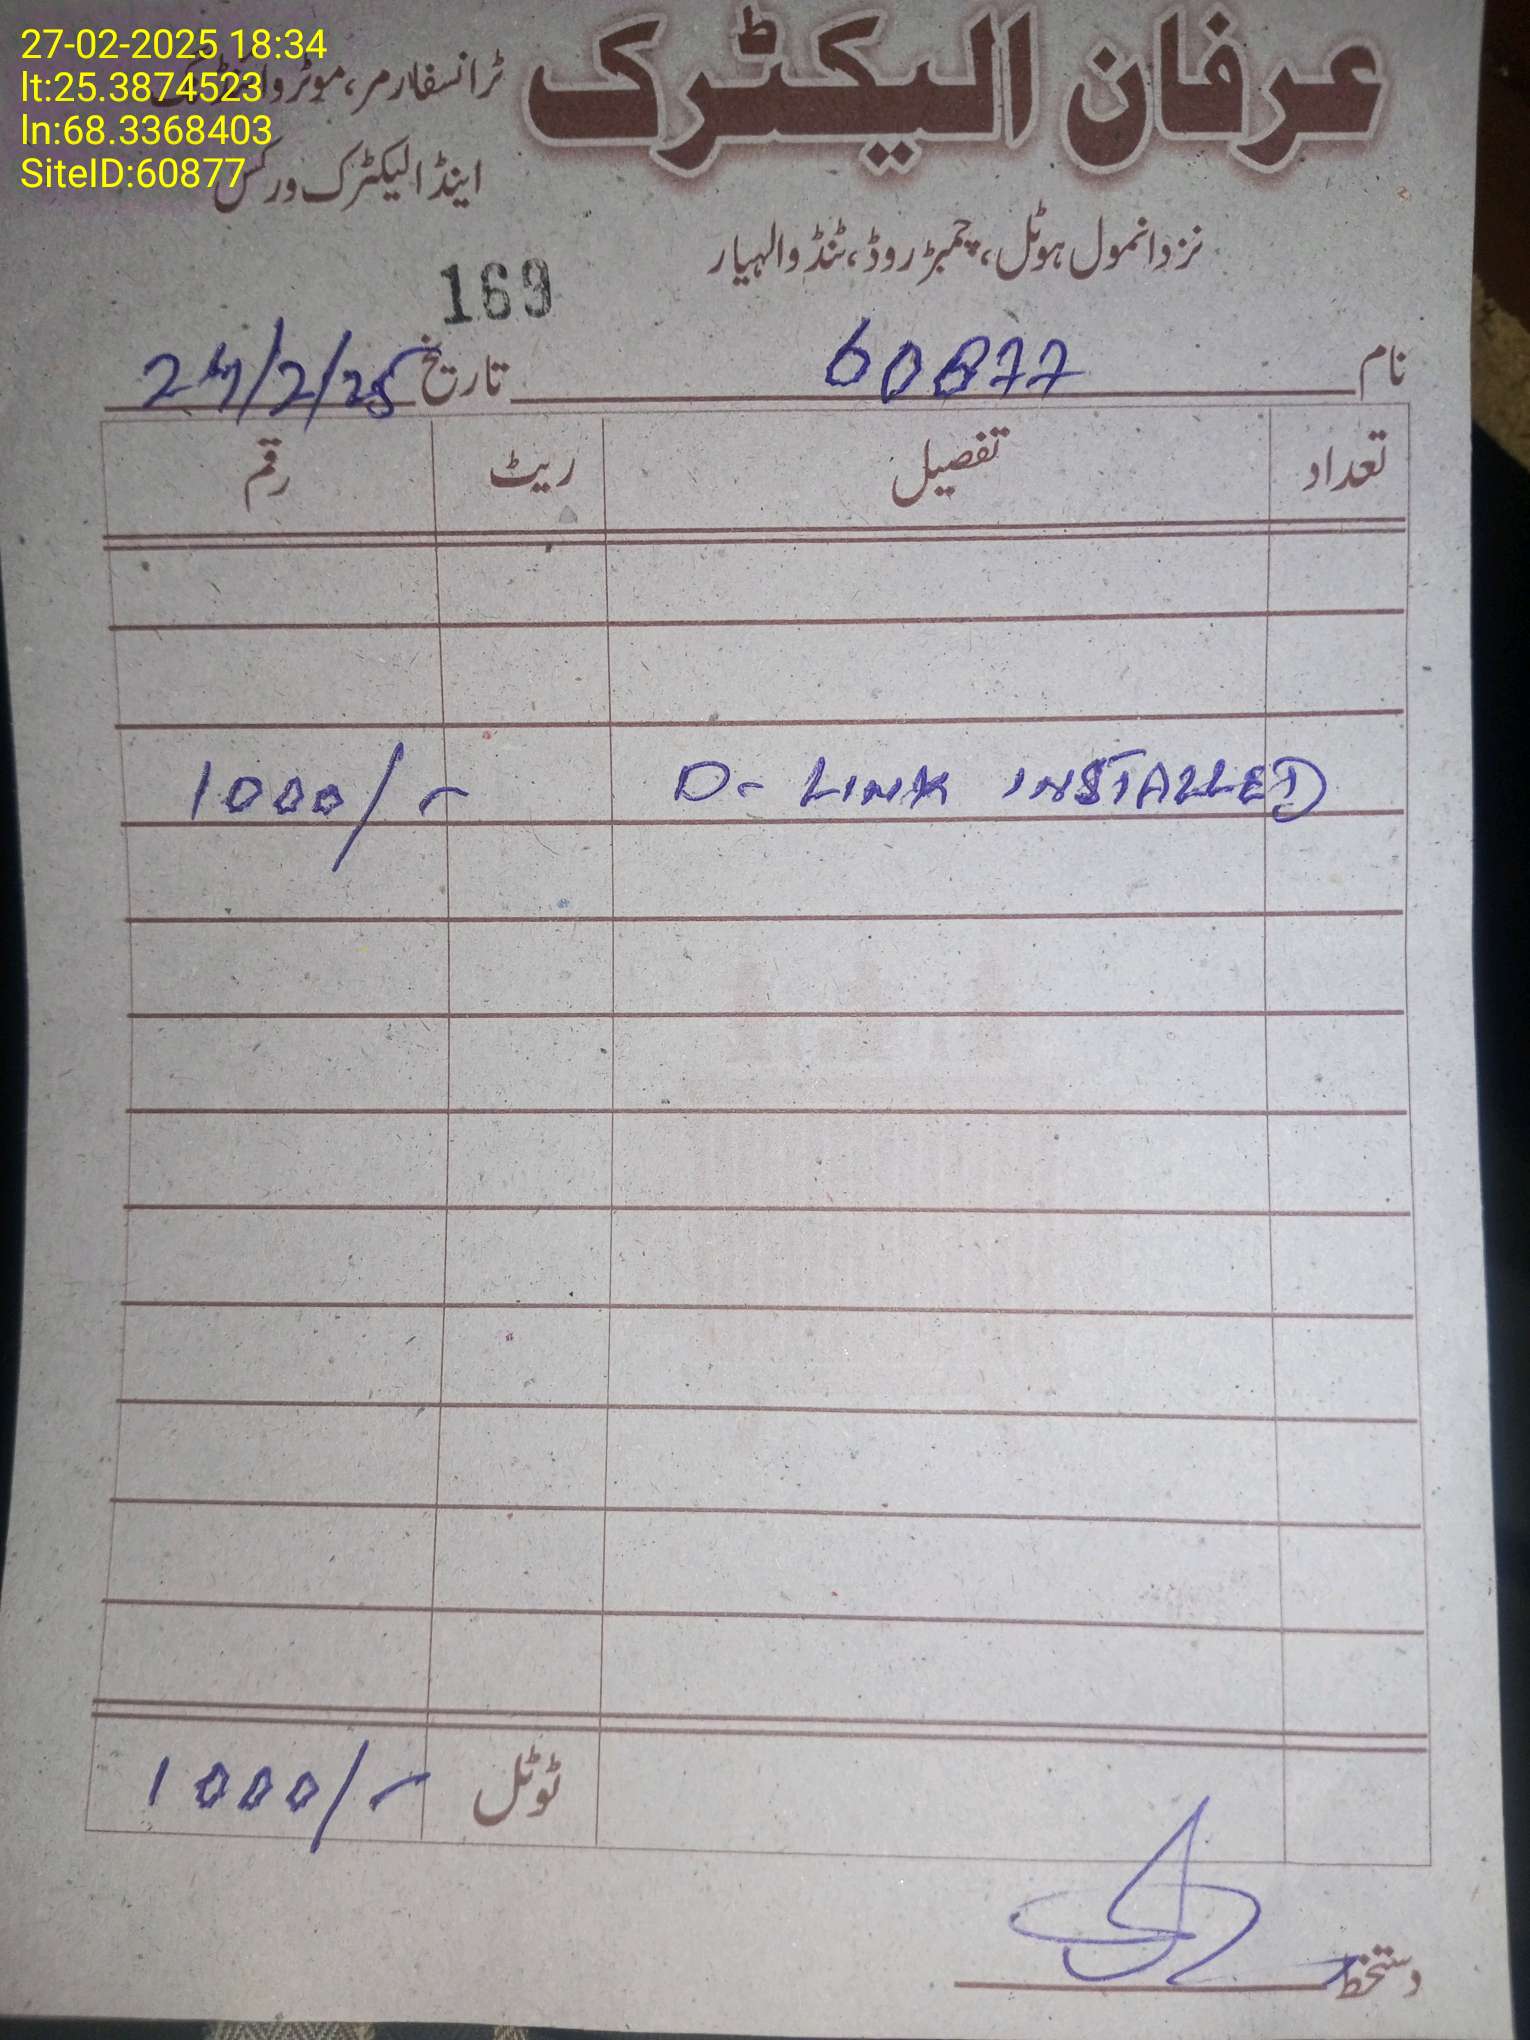 27-02-2025 18:34
lt:25.3874523
ln:68.3368403
SiteID:60877
عرفان الیکٹرک
ٹرانسفارمر، موٹر وائنڈنگ
اینڈ الیکٹرک ورکس
نزد انمول ہوٹل، چمبڑ روڈ، ٹنڈوالہیار
169
نام 60877 تاریخ 27/2/25
تعداد تفصیل ریٹ رقم
D- LINK INSTALLED 1000/-
ٹوٹل 1000/-
دستخط